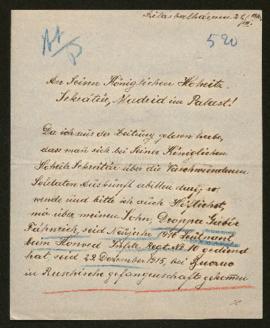 520
An Seine Königlichen Hoheit
Sekretär, Madrid im Palast!
Da ich aus der Zeitung gelesen habe,
dass man sich bei Seiner Königlichen
Hoheit Sekretär über die Verschwundenen
Soldaten Auskunft erbitten darf so
wende und bitte ich auch Höflichst
mir über meinen Sohn,
Fähnrich, seit 1916 Leutnant
beim Honved Regt. No 10 gedient
hat seit 22 Dezember 1915, bei
in Russische gefangenschaft gekommen